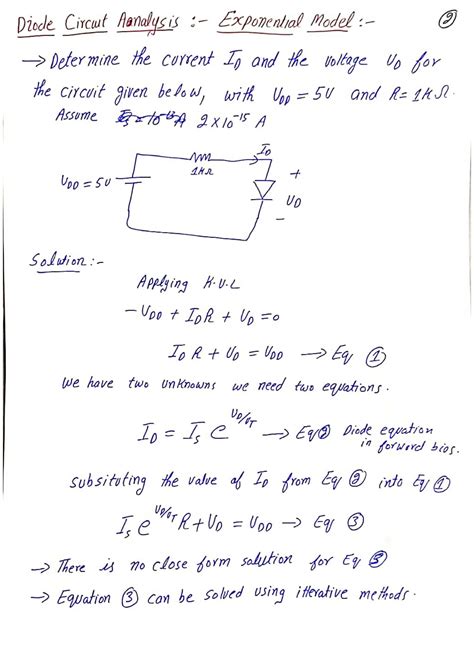 Diode Circuit Analysis :- Exponential Model :-
②
→ Determine the current I_D and the voltage V_D for
the circuit given below, with V_DD = 5V and R = 1KΩ.
Assume I_S = 10⁻¹³A 2 × 10⁻¹⁵ A
I_D
1KΩ
+
V_DD = 5V
V_D
-
Solution :-
Applying K.V.L
-V_DD + I_D R + V_D = 0
I_D R + V_D = V_DD → Eq ①
We have two unknowns we need two equations.
I_D = I_S e^{V_D/V_T} → Eq② Diode equation
in forward bios.
subsituting the value of I_D from Eq ② into Eq ①
I_S e^{V_D/V_T} R + V_D = V_DD → Eq ③
→ There is no close form salution for Eq ③
→ Equation ③ can be solved using itterative methods.